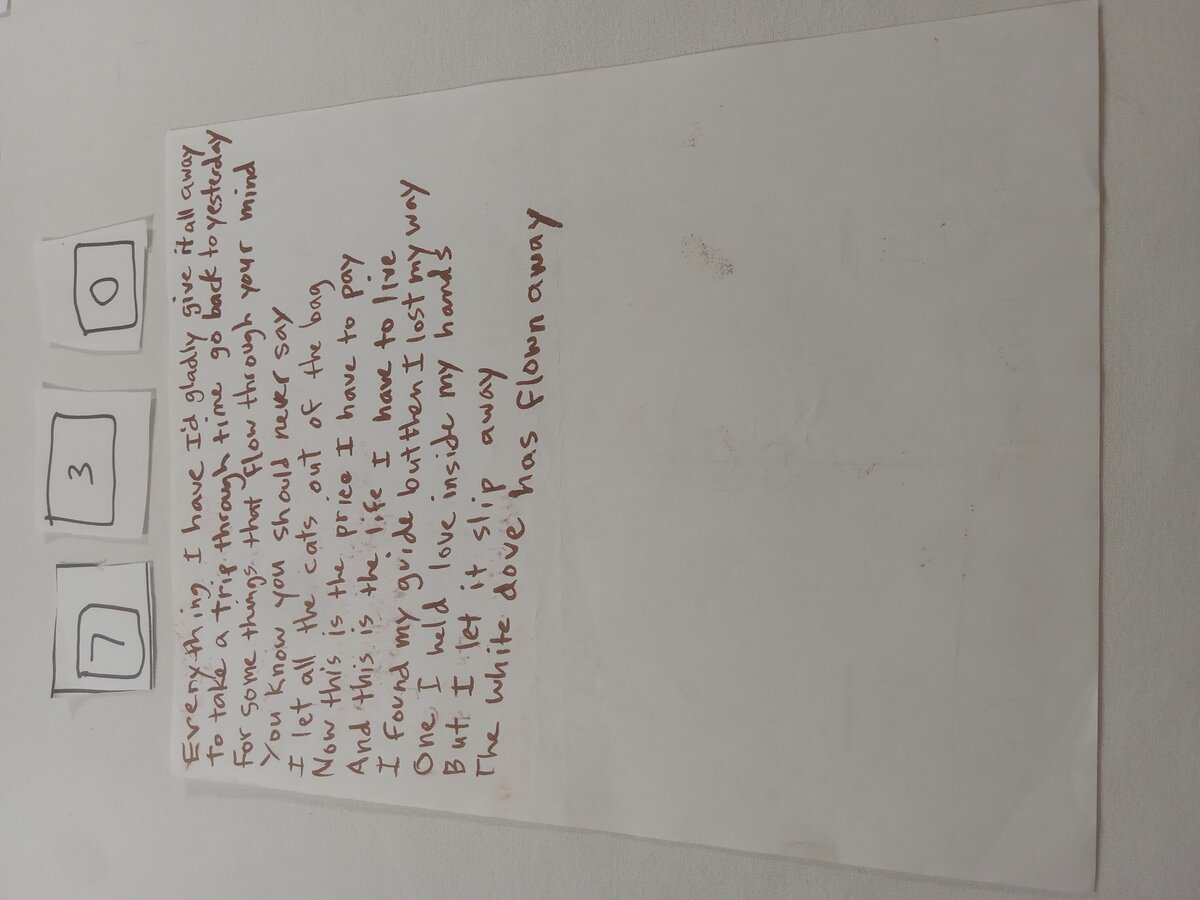 7 3 0
Everything I have I'd gladly give it all away
to take a trip through time go back to yesterday
For some things that flow through your mind
You know you should never say
I let all the cats out of the bag
Now this is the price I have to pay
And this is the life I have to live
I found my guide but then I lost my way
One I held love inside my hands
But I let it slip away
The white dove has flown away